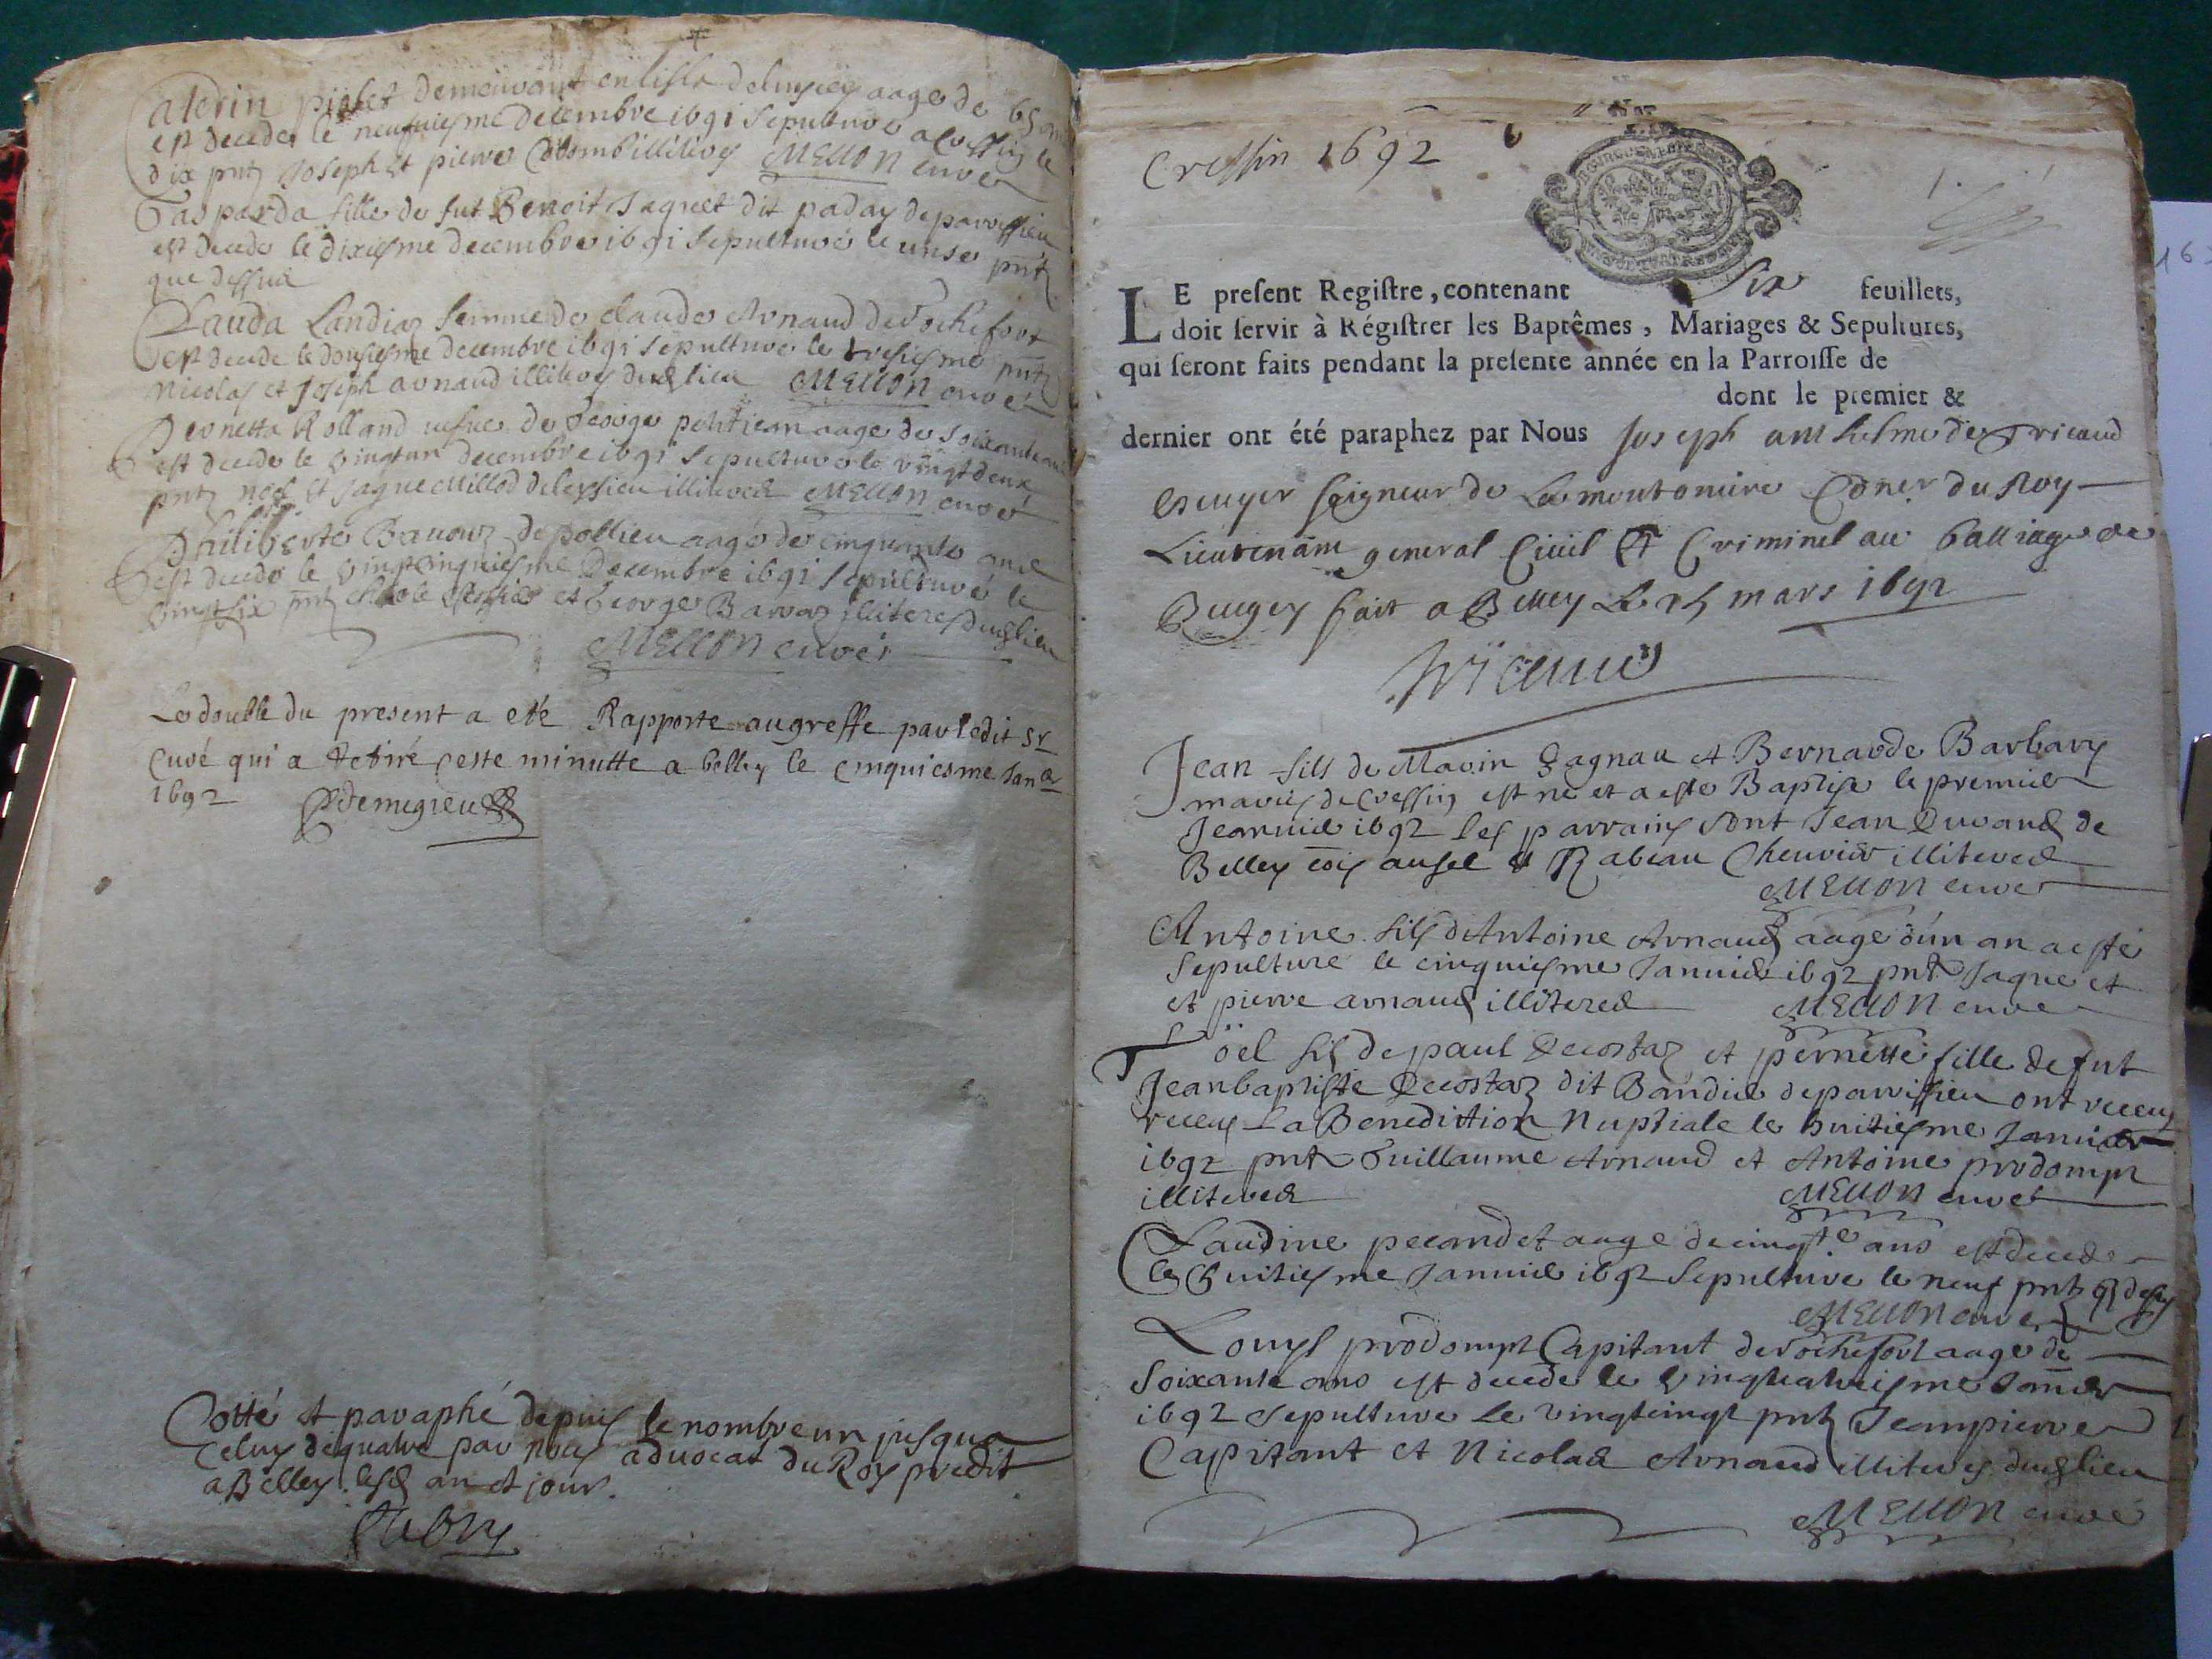 Caterin piolet demeurant en lisle de lusiey aage de 65 ans
est decede le neufuiesme decembre 1691 sepulture a Cressin le
dix pntz Joseph et pierre Colomb illiteres MELLON curé
Gasparda fille de fut Benoit Jaquet dit paday de parvissieu
est decede le dixiesme decembre 1691 sepulturé le unse pntz
que dessus
Clauda Landiaz femme de claude Arnaud de rochefort
est decede le dousiesme decembre 1691 sepulture le tresiesme pntz
Nicolas et Joseph arnaud illiteres dud lieu MELLON curé
Peonetta Rolland vefue de George aage de soixante ans
est decede le vingtun decembre 1691 sepulture le vingt deux
pntz noel et Jaque Millod de illiteres MELLON curé
Philiberte Bavouz de pollieu aagé de cinquante ans
est decede le vingtcinquiesme Decembre 1691 sepulturé le
vingtsix pntz et George Barraz illiteres dud lieu
MELLON curé
Le double du present a eté Rapporte au greffe par ledit Sr
Curé qui a Retiré ceste minutte a belley le cinquiesme Janer
1692 Demigieu
Cotté et paraphé depuis le nombre un jusqua
Celuy de quatre par nous advocat du Roy predit
a Belley lesd an et jour.
Cressin 1692
LE present Registre, contenant six feuillets,
doit servir à Régistrer les Baptêmes, Mariages & Sepultures,
qui seront faits pendant la presente année en la Parroisse de
dont le premier &
dernier ont été paraphez par Nous Joseph anthelme de Tricaud
escuyer seigneur de Lamoutoniere Coner du Roy
Lieutenant general Civil Et Criminel au balliage de
Bugey fait a Belley Le mars 1692
Tricaud
Jean fils de Marin Gagnau et Bernarde Barbary
maries de Cressin est né et a esté Baptise le premier
Jeanvier 1692 les parrains sont Jean Durand de
Belley Rabeau Cheuvier illiteres
MELLON curé
Antoine fils d'Antoine Arnaud aagé d'un an a esté
Sepulturé le cinquiesme Januier 1692 pntz Jaque et
et pierre arnaud illiteres MELLON curé
Noël filz de paul Decostaz et pernette fille de fut
Jeanbaptiste Decostaz dit Bandie de parvissieu ont receu
receu La Benediction Nuptiale le huitiesme Januier
1692 pntz Guillaume Arnaud et Antoine prodompt
illiteres MELLON curé
Claudine pecandet aage de cinqte ans est decede
le huitiesme Januier 1692 Sepulture le neuf pntz q dess
MELLON curé
Louys prodompt Capitant de rochefort aage de
Soixante ans est decede le vingtcatreisme Januier
1692 Sepulture Le vingtcinqt pntz Jeanpierre
Capitant et Nicolas Arnaud illiteres dud lieu
MELLON curé